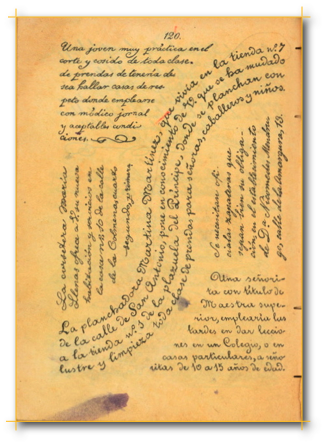 120.
Una joven muy práctica en el
corte y cosido de toda clase
de prendas de lencería de-
sea hallar casas de res-
peto donde emplearse
con módico jornal
y aceptables condi-
ciones.
La planchadora Martina Martínez, que vivía en la tienda nº 7
de la calle de San Antonio, pone en conocimiento de Vd. que se ha mudado
a la tienda nº 3 de la plazuela del Príncipe, donde se planchan con
lustre y limpieza toda clase de prendas para señoras, caballeros y niños.
La corsetera María
Llanas ofrece a Vd. su nueva
habitación y servicio en
la casa nº 10 de la calle
de la Colmena, cuarto
segundo, y
Se necesitan ofi-
cialas
sepan bien su obliga-
ción en el establecimiento
de D. Mercedes
calle de la 13.
Una señori-
ta con título de
Maestra supe-
rior, emplearía las
tardes en dar leccio-
nes en un Colegio, o en
casas particulares, a seño-
ritas de 10 a 15 años de edad.